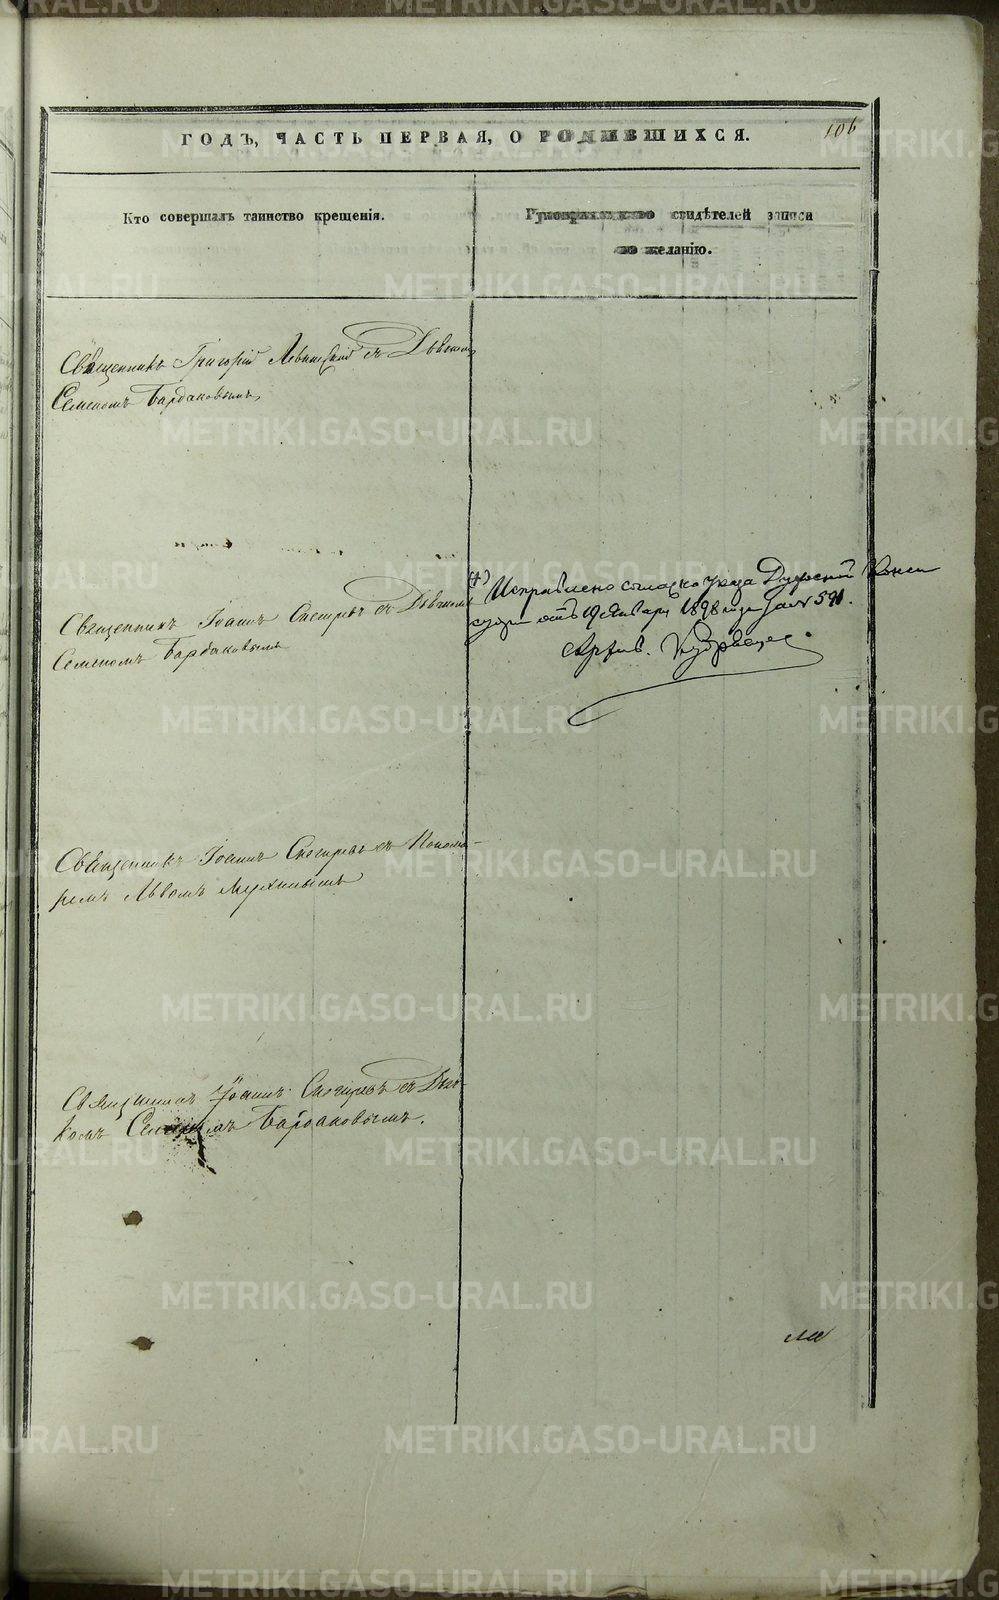 106
ГОДЪ, ЧАСТЬ ПЕРВАЯ, О РОДИВШИХСЯ.
Кто совершалъ таинство крещенія.
Рукоприкладство свидѣтелей записи
по желанію.
Священникъ Григорій Левитскій съ Дьякомъ
Семеномъ Бардаковымъ
Священникъ Іоаннъ Снегиревъ съ Дьячкомъ
Семеномъ Бардаковымъ
(+) Исправлено согласно указа Духовной Конси
сторіи отъ 19 Января 1898 года за № 591.
Архив. Кудрявцев
Священникъ Іоаннъ Снегиревъ съ Понома-
ремъ Львомъ
Священникъ Іоаннъ Снегиревъ съ Дья-
комъ Семеномъ Бардаковымъ.
METRIKI.GASO-URAL.RU